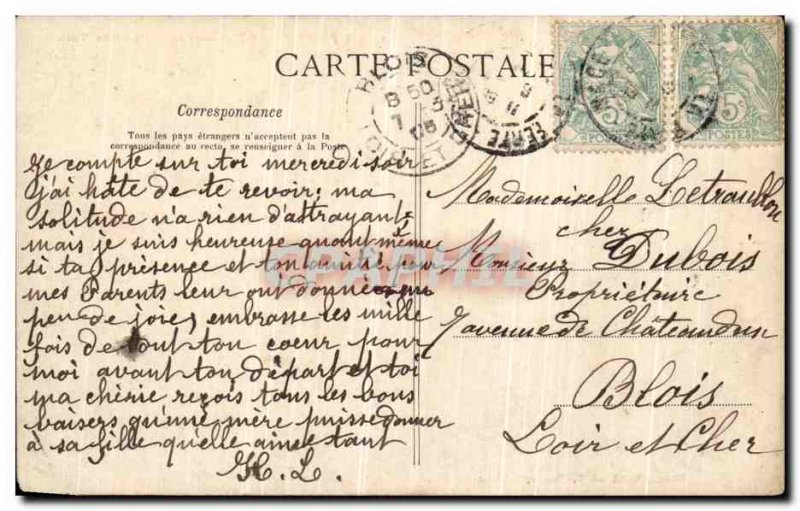 CARTE POSTALE
Correspondance
Tous les pays étrangers n'acceptent pas la
correspondance au recto, se renseigner à la Poste
Je compte sur toi mercredi soir
j'ai hâte de te revoir; ma
solitude n'a rien d'attrayant
mais je suis heureuse quant même
si ta présence et ton amitié pour
mes Parents leur ont donné un
peu de joie, embrasse les mille
fois de tout ton coeur pour
moi avant ton départ et toi
ma chérie reçois tous les bons
baisers qu'une mère puisse donner
à sa fille qu'elle aime tant
H. L.
Mademoiselle
chez
Monsieur Dubois
Propriétaire
7 avenue de Châteaudun
Blois
Loir et Cher
BLOIS
LOIR-ET-CHER
5c
POSTES
5c
POSTES